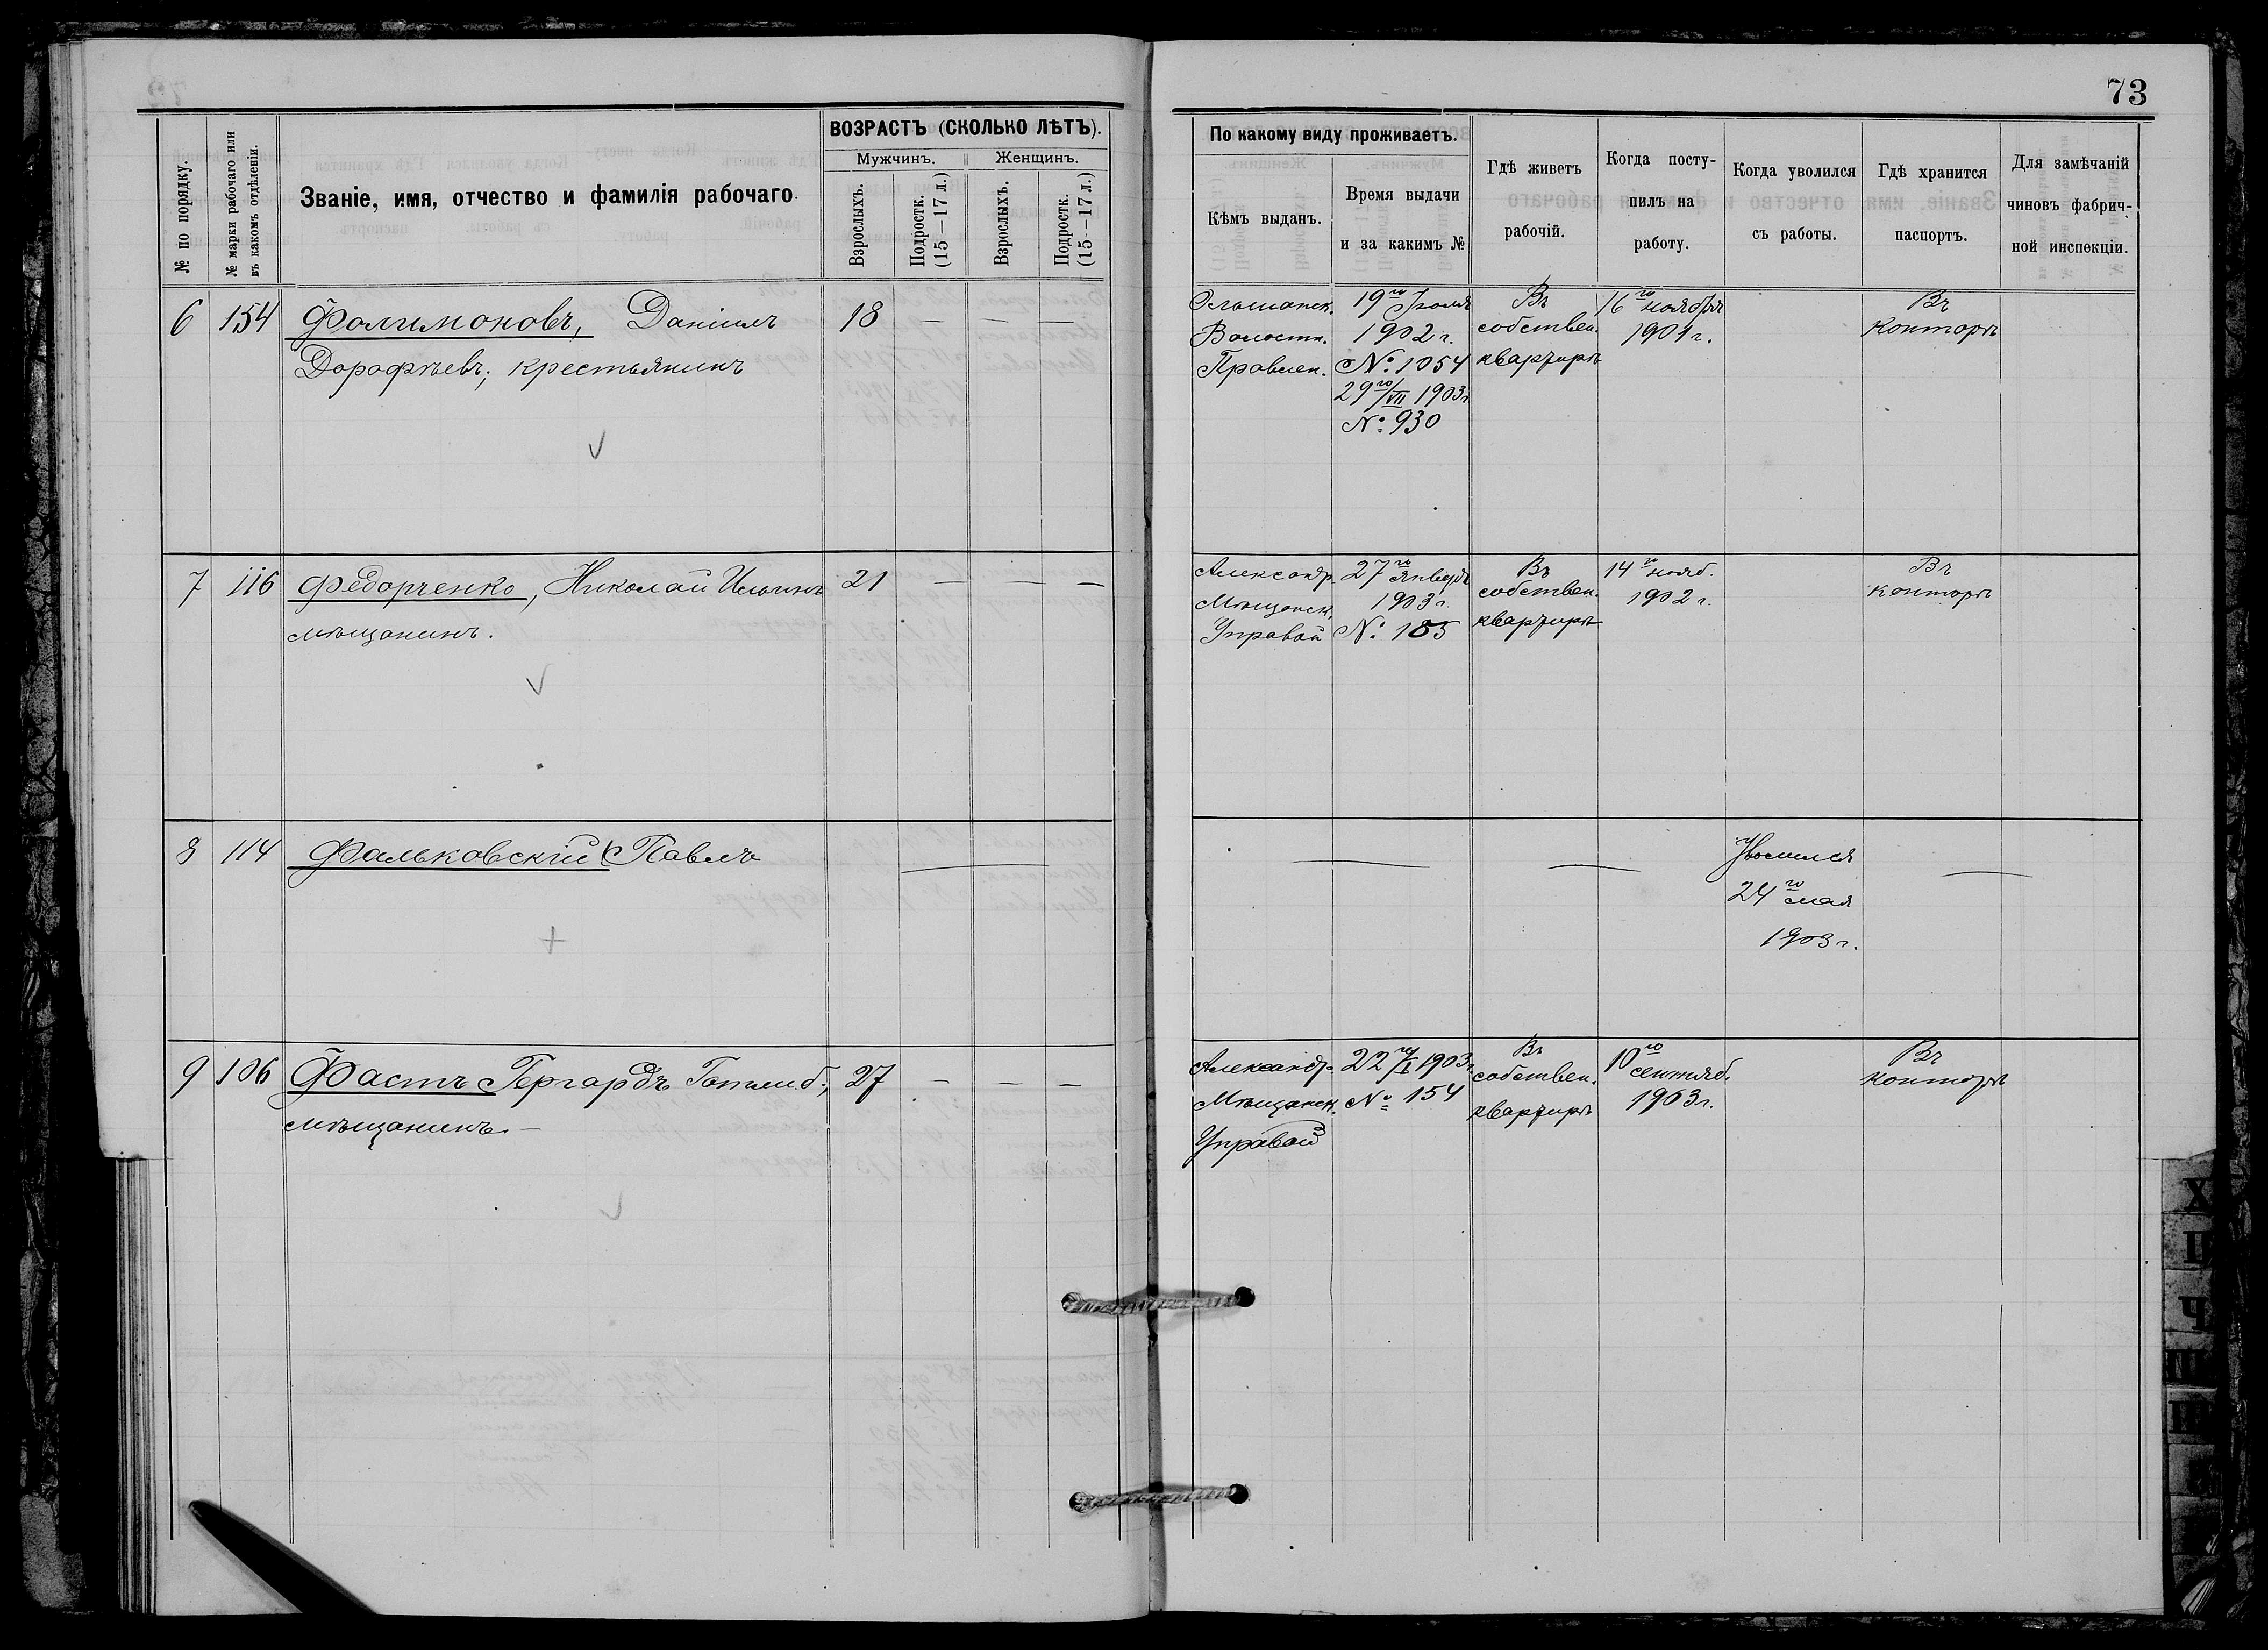 73
ВОЗРАСТЪ (СКОЛЬКО ЛѢТЪ).
Мужчинъ. Женщинъ.
№ по порядку.
№ марки рабочаго или
въ какомъ отдѣленіи.
Званіе, имя, отчество и фамилія рабочаго.
Взрослыхъ.
Подростк.
(15—17 л.)
Взрослыхъ.
Подростк.
(15—17 л.)
По какому виду проживаетъ.
Кѣмъ выданъ.
Время выдачи
и за какимъ №
Гдѣ живетъ
рабочій.
Когда посту-
пилъ на
работу.
Когда уволился
съ работы.
Гдѣ хранится
паспортъ.
Для замѣчаній
чиновъ фабрич-
ной инспекціи.
6 154 Фолимоновъ, Даніилъ 18 — — —
Дорофѣевъ; крестьянинъ
Ольшанск.
Волостн.
Правлен.
19го Іюля
1902 г.
№ 1054
29го/VII 1903г.
№ 930
Въ
собствен.
квартирѣ
16го ноября
1901 г.
Въ
конторѣ
7 116 Федорченко, Николай Ильинъ 21 — — —
мѣщанинъ.
Александр.
Мѣщанск.
Управой
27го Январѣ
1903 г.
№ 185
Въ
собствен.
квартирѣ
14го нояб.
1902 г.
Въ
конторѣ
8 114 Фальковскій Павелъ —
— —
Уволился
24го мая
1903 г.
—
9 106 Фастъ Гергардъ Готлиб.; 27 — — —
мѣщанинъ.—
Александр.
Мѣщанск.
Управой
22го/I 1903г.
№ 154
Въ
собствен.
квартирѣ
10го
сентяб.
1903г.
Въ
конторѣ
Х
Ц
Ч
Ш
Щ